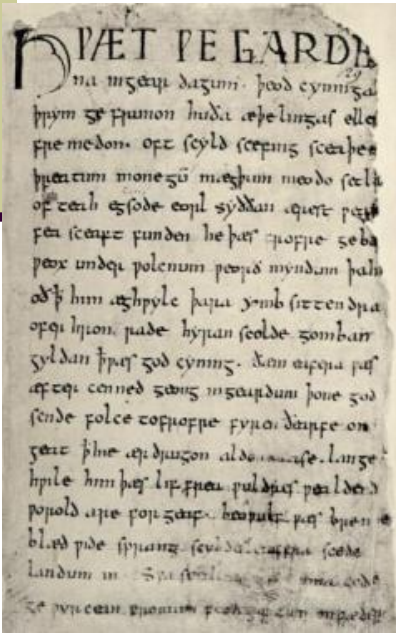 HǷÆT ǷE GARDE
na ingear dagum. þeod cyninga
þrym ge frunon huða æþelingas elle
fre medon. oft scyld scefing sceaþe
þreatum monegū mægþum meodo setla
of teah egsode eorl syððan ærest ƿear
fea sceaft funden he þæs frofre geba
ƿeox under ƿolcnum ƿeorð myndum þah
oð þ̄ him æghƿylc þara ymb sittendra
ofer hron rade hyran scolde gomban
gyldan þæt ƿæs god cyning. ðæm eafera ƿæs
æfter cenned geong ingeardum þone god
sende folce tofrofre fyren ðearfe on
geat þ̄ hie ær drugon aldor ase. lange
hƿile him þæs lif frea ƿuldres ƿealdend
ƿorold are for geaf. beoƿulf ƿæs breme
blæd ƿide sprang scyldes eafera scede
landum in
ge ƿyrcean fromum feoh giftum